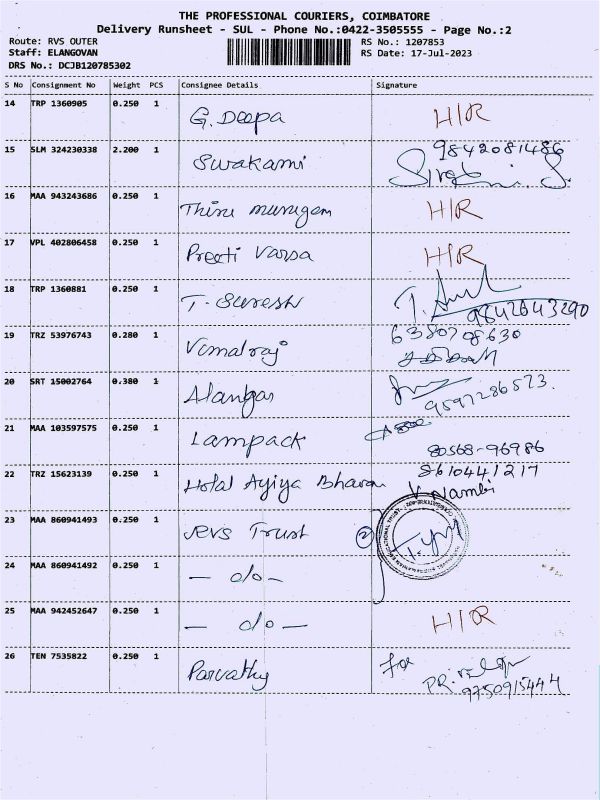 THE PROFESSIONAL COURIERS, COIMBATORE
Delivery Runsheet - SUL - Phone No.:0422-3505555 - Page No.:2
Route: RVS OUTER RS No.: 1207853
Staff: ELANGOVAN RS Date: 17-Jul-2023
DRS No.: DCJB120785302
S No Consignment No Weight PCS Consignee Details Signature
14 TRP 1360905 0.250 1 G. Deepa H/R
15 SLM 324230338 2.200 1 Swakami 9842081486
16 MAA 943243686 0.250 1 Thiru murugan H/R
17 VPL 402806458 0.250 1 Preeti Varsa H/R
18 TRP 1360881 0.250 1 T. Suresh 9842643290
19 TRZ 53976743 0.280 1 Vimalraj 6380708630
20 SRT 15002764 0.380 1 Alangar 9597286573.
21 MAA 103597575 0.250 1 Lampack 80568-96986
22 TRZ 15623139 0.250 1 Hotal Ayiya Bharan 8610441217
V. Nambi
23 MAA 860941493 0.250 1 RVS Trust 2
24 MAA 860941492 0.250 1 — do —
25 MAA 942452647 0.250 1 — do — H/R
26 TEN 7535822 0.250 1 Parvathy for
PR.
9750915444